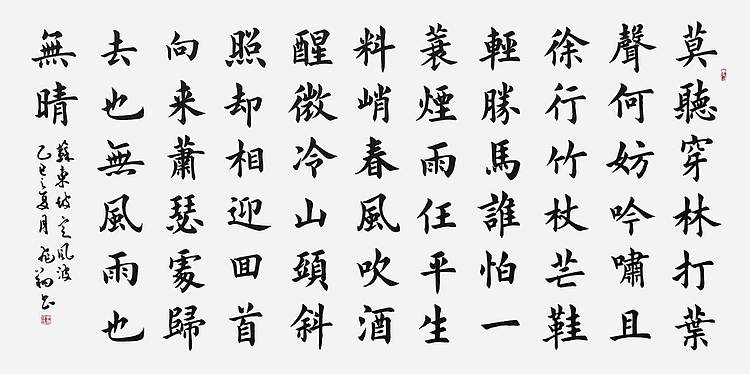 莫聽穿林打葉
聲何妨吟嘯且
徐行竹杖芒鞋
輕勝馬誰怕一
蓑煙雨任平生
料峭春風吹酒
醒微冷山頭斜
照却相迎囬首
向来蕭瑟處歸
去也無風雨也
無晴
蘇東坡定風波
乙巳之夏月